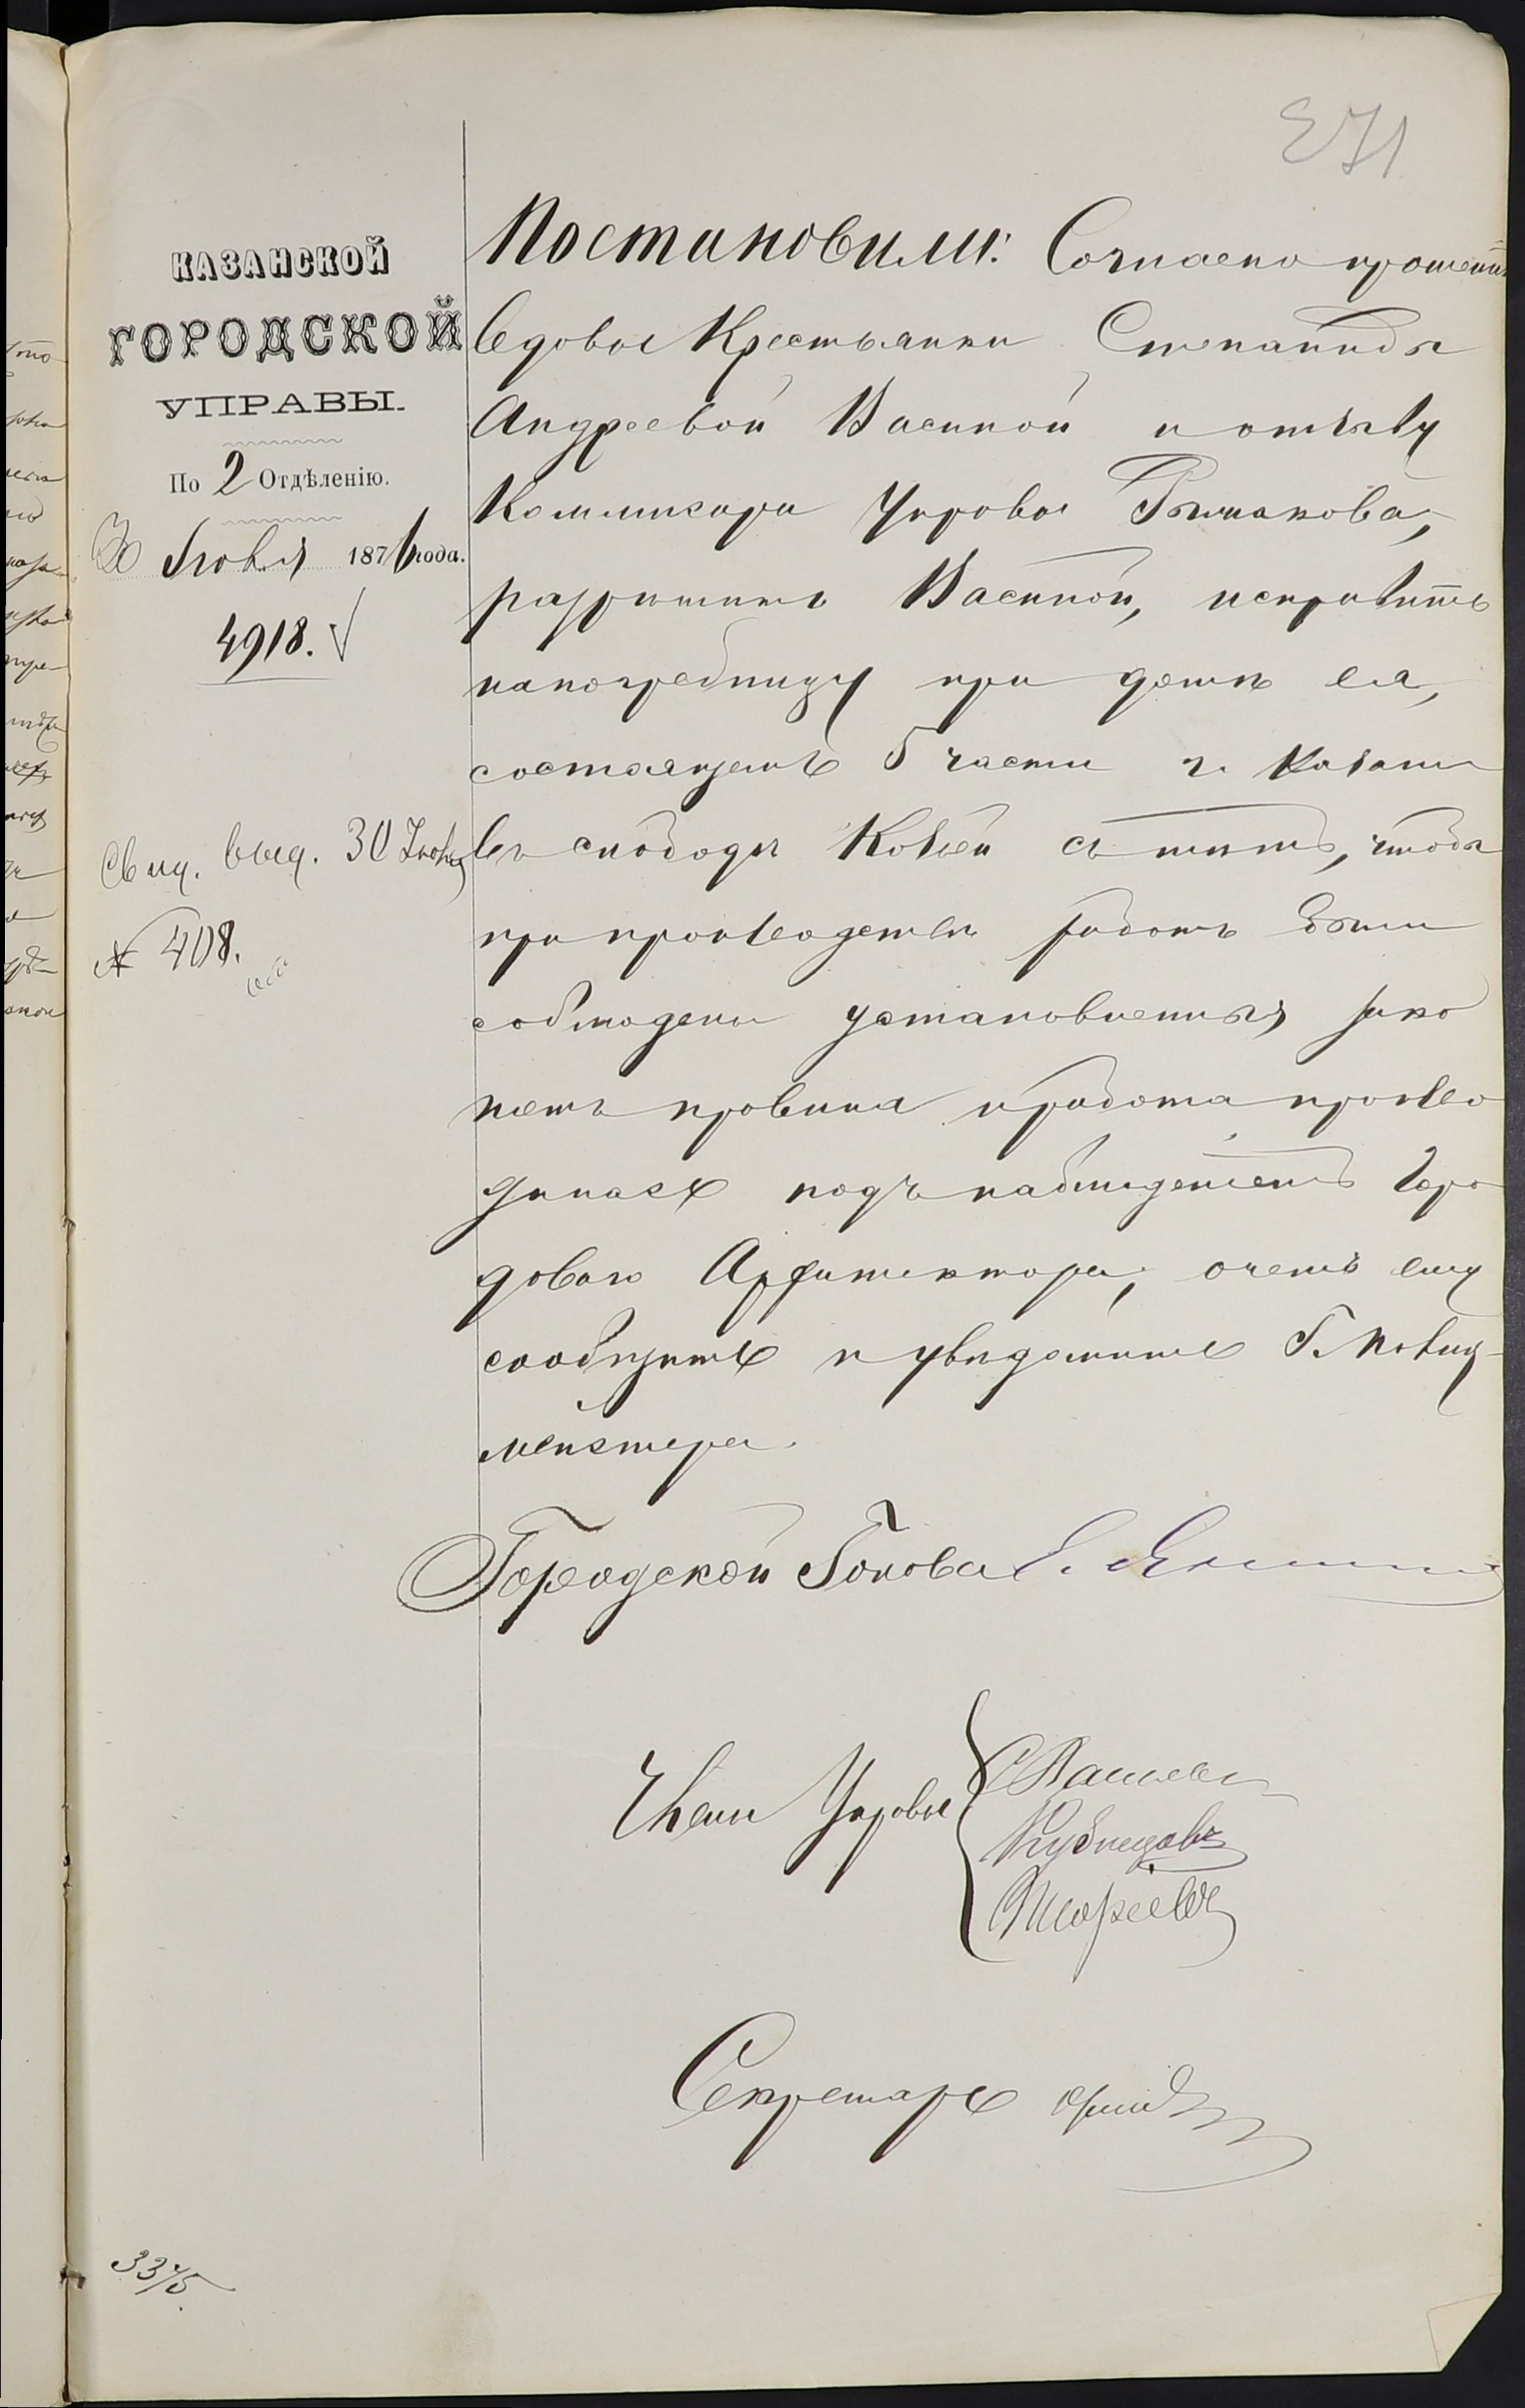 271
КАЗАНСКОЙ
ГОРОДСКОЙ
УПРАВЫ.
По 2 Отдѣленію.
30 Іюня 1876 года.
4918.
Свид. выд. 30 Іюня
№ 408.
Постановили: Согласно прошенія
вдовы Крестьянки Степаниды
Андреевой Васиной и отзыву
Коммисара Управы
разрѣшить Васиной, исправить
напогребницу при домѣ ея,
состоящемъ 5 части г. Казани
въ слободѣ Козьей съ тѣмъ, чтобы
при производствѣ работъ были
соблюдены установленныя зако
номъ правила и работа произво
дилась подъ наблюденіемъ Горо
доваго Архитектора, о чемъ ему
сообщить и увѣдомить Г. Полиц-
меистера.
Городской Голова Э. Янишевскій
Члены Управы
Кубнецовъ
Секретарь
3345.